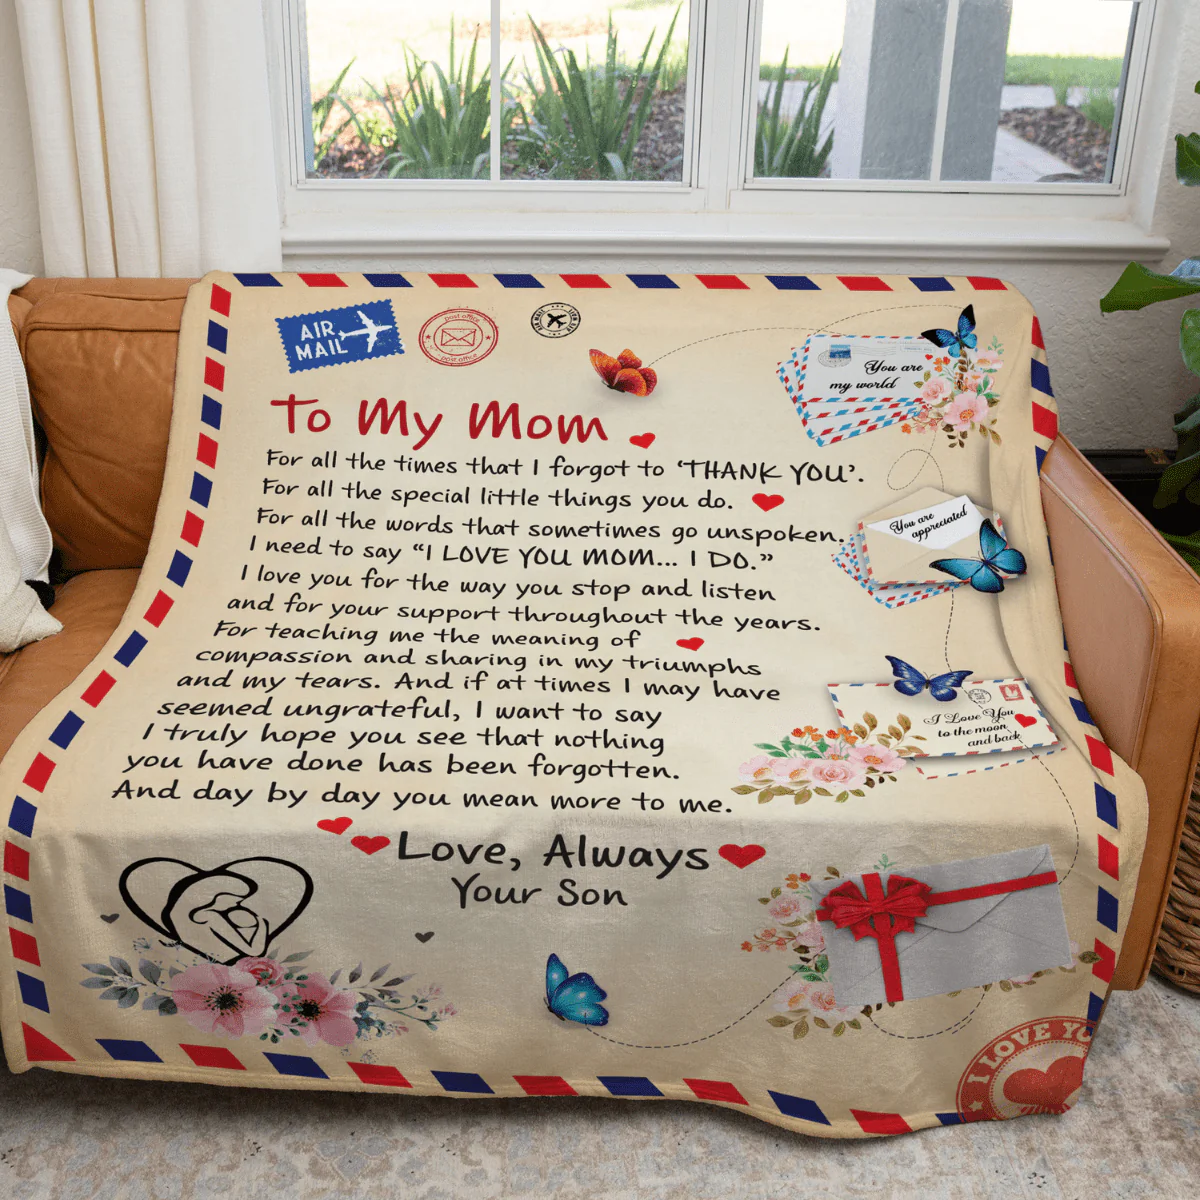 AIR
MAIL
post office
post office
AIR MAIL
AIR MAIL
You are
my world
To My Mom
For all the times that I forgot to ‘THANK YOU’.
For all the special little things you do.
For all the words that sometimes go unspoken.
I need to say “I LOVE YOU MOM... I DO.”
I love you for the way you stop and listen
and for your support throughout the years.
For teaching me the meaning of
compassion and sharing in my triumphs
and my tears. And if at times I may have
seemed ungrateful, I want to say
I truly hope you see that nothing
you have done has been forgotten.
And day by day you mean more to me.
Love, Always
Your Son
You are
appreciated
I Love You
to the moon
and back
I LOVE YO